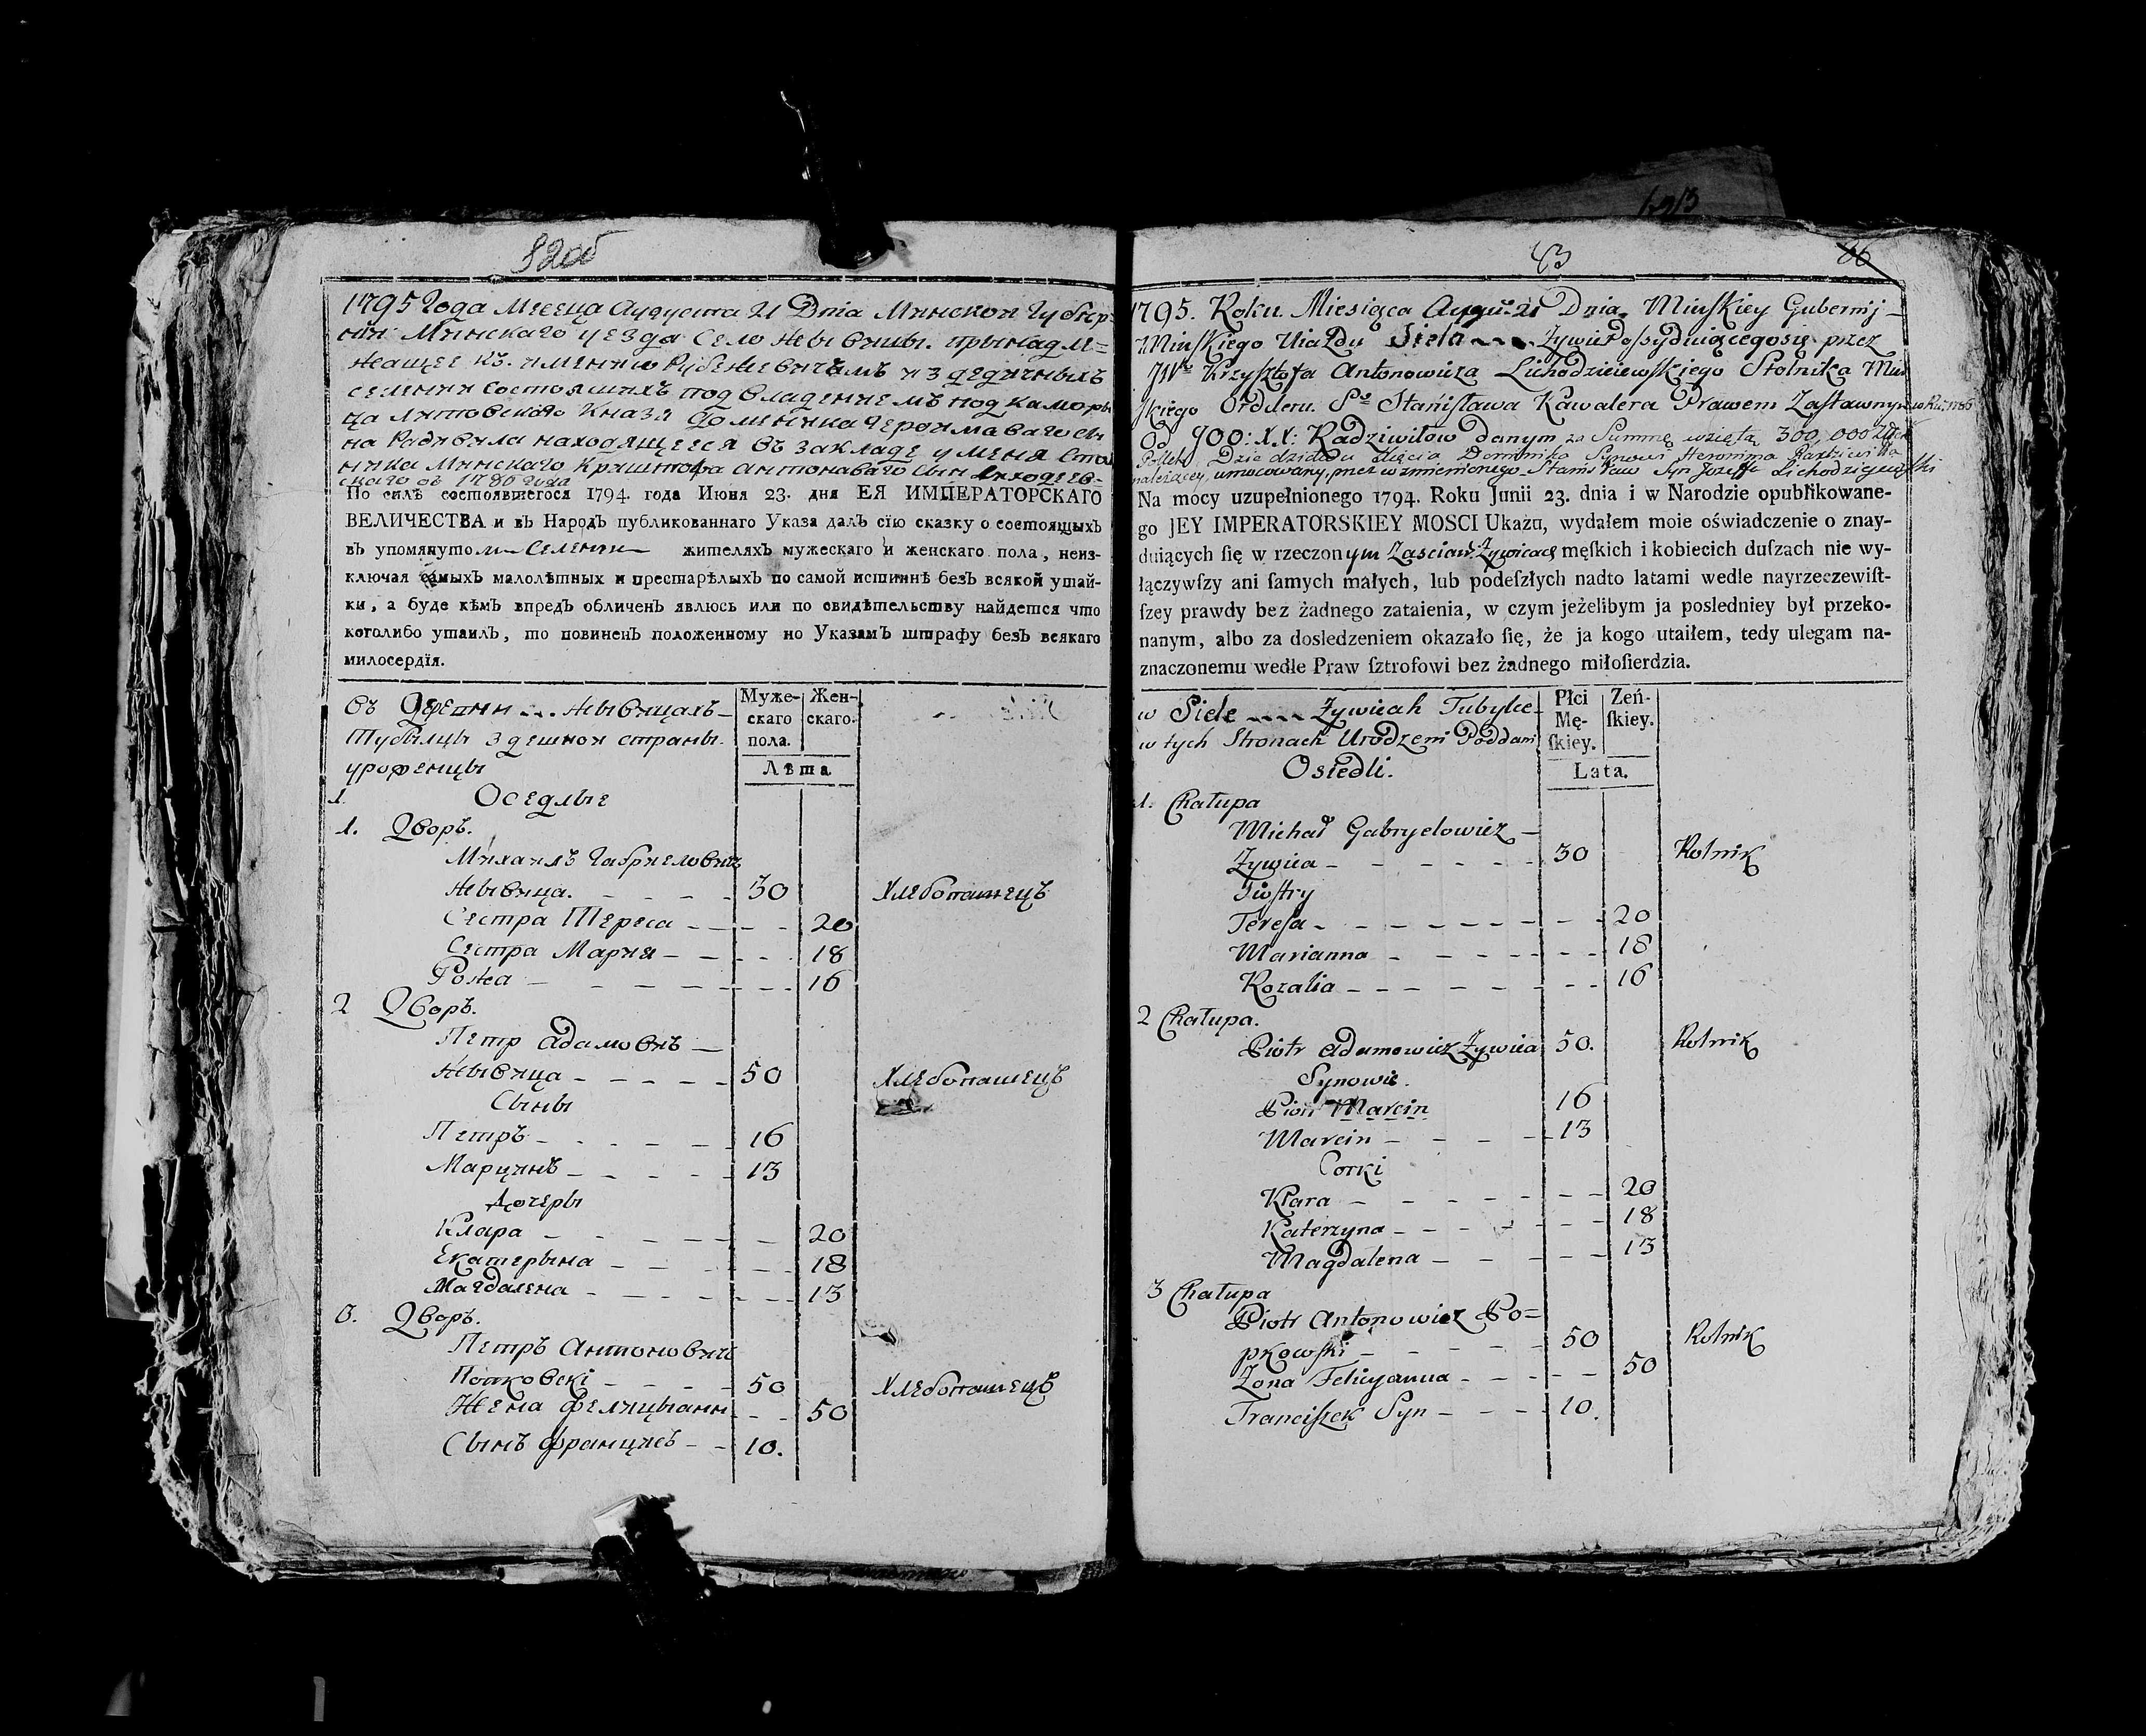 82об
1795 Года Месеца Аугуста 21 Dnia Минскои Губер-
нии Минскаго уезда Село Жывицы. прынадле=
жащее къ имению Рубежевичамъ из дедичныхъ
селении состоящихъ под владениемъ подкаморы
ца Литовского Князя Доминика Геронимаваго сы
на Радивила находящееся въ закладе у меня Сто
ника Минскаго Крыштофа Антонаваго сын Лиходзев=
скаго съ 1786 года
По силѣ состоявшегося 1794. года Июня 23. дня ЕЯ ИМПЕРАТОРСКАГО
ВЕЛИЧЕСТВА и въ Народъ публикованнаго Указа далъ сїю сказку о состоящыхъ
въ упомянутом Селении жителяхъ мужескаго и женскаго пола, неиз-
ключая самыхъ малолѣтных и престарѣлыхъ по самой истиннѣ безъ всякой утай-
ки, а буде кѣмъ впредъ обличенъ явлюсь или по свидѣтельству найдется что
коголибо утаилъ, то повиненъ положенному по Указамъ штрафу безъ всякаго
милосердїя.
въ Деревни Жывицахъ
Тубылцы здешнои страны.
уроженцы
Муже-
скаго
пола.
Жен-
скаго.
Лѣта
1. Оседлые
1. Дворъ.
Михаилъ Габриелович
Жывица. 30 Хлебопашецъ
Сестра Тереса 20
Сестра Мария 18
Рожа 16
2 Дворъ.
Петр Адамовичъ
Жывица 50 Хлебопашецъ
Сыны
Петръ 16
Марцинъ 13
Дочеры
Клара 20
Екатерына 18
Магдалена 13
3. Дворъ.
Петръ Антонович
Попковскі 50 Хлебопашецъ
Жена Фелицыанн 50
Сынъ Францишек 10.
83
86
1795. Roku Miesiąca Augu: 21 Dnia Minſkiey Gubernij
Minſkiego Uiazdu Sieła Żywic Poſsyduiącegosię przez
JW Krzyſztofa Antonowicza Lichodzieiewſkiego Stolnika Miń
ſkiego Orderu. S° Stanisława Kawalera Prawem Zaſtawnym w Ru: 1786
Od JOO: X.X: Radziwiłow danym za Summę wziętą 300,000 Złtch
Polſch Dziedzictwu Xięcia Dominika Synowi Hieronima Radziwiłła
należącey, umocowany, przez wzmienionego Stanisław Syn Jozeffa Lichodzieiewſki
Na mocy uzupełnionego 1794. Roku Junii 23. dnia i w Narodzie opublikowane-
go JEY IMPERATORSKIEY MOSCI Ukazu, wydałem moie oświadczenie o znay-
duiących ſię w rzeczonym Zascian: Żywicach męſkich i kobiecich duſzach nie wy-
łączywſzy ani ſamych małych, lub podeſzłych nadto latami wedle nayrzeczewiſt-
ſzey prawdy bez żadnego zataienia, w czym jeżelibym ja posledniey był przeko-
nanym, albo za dosledzeniem okazało ſię, że ja kogo utaiłem, tedy ulegam na-
znaczonemu wedle Praw ſztrofowi bez żadnego miłoſierdzia.
w Siele Żywicach Tubylce
w tych Stronach Urodzeni Poddani
Osiedli.
Płci
Mę-
ſkiey.
Zeń-
ſkiey.
Lata.
1. Chałupa
Michał Gabryelowicz
Żywica 30 Rolnik
Siostry
Tereſa 20
Marianna 18
Rozalia 16
2 Chałupa.
Piotr Adamowicz Żywica 50. Rolnik
Synowie.
Piotr Marcin 16
Marcin 13
Corki
Klara 20
Katerzyna 18
Magdalena 13
3 Chałupa
Piotr Antonowicz Po=
pkowſki 50 Rolnik
Żona Felicyanna 50
Franciſzek Syn 10.